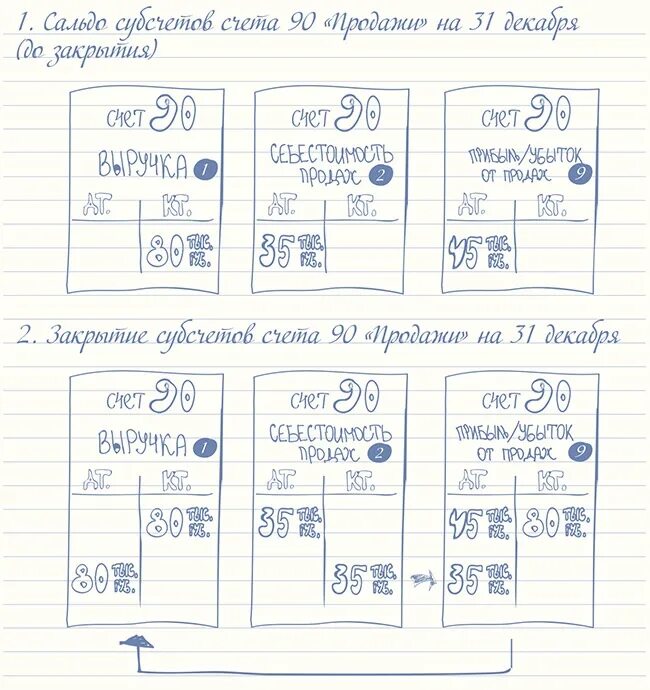 1. Сальдо субсчетов счета 90 «Продажи» на 31 декабря
(до закрытия)
СЧЕТ 90
ВЫРУЧКА 1
ДТ. КТ.
80 ТЫС. РУБ.
СЧЕТ 90
СЕБЕСТОИМОСТЬ
ПРОДАЖ 2
ДТ. КТ.
35 ТЫС. РУБ.
СЧЕТ 90
ПРИБЫЛЬ/УБЫТОК
ОТ ПРОДАЖ 9
ДТ. КТ.
45 ТЫС. РУБ.
2. Закрытие субсчетов счета 90 «Продажи» на 31 декабря
СЧЕТ 90
ВЫРУЧКА 1
ДТ. КТ.
80 ТЫС. РУБ.
80 ТЫС. РУБ.
СЧЕТ 90
СЕБЕСТОИМОСТЬ
ПРОДАЖ 2
ДТ. КТ.
35 ТЫС. РУБ.
35 ТЫС. РУБ.
СЧЕТ 90
ПРИБЫЛЬ/УБЫТОК
ОТ ПРОДАЖ 9
ДТ. КТ.
45 ТЫС. РУБ. 80 ТЫС. РУБ.
35 ТЫС. РУБ.